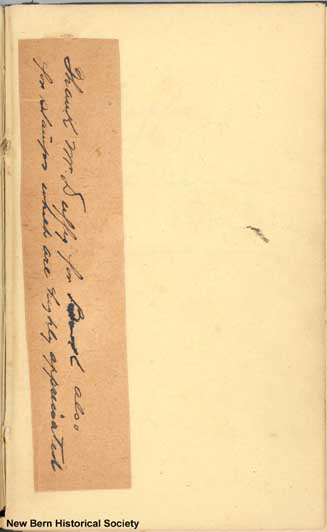 Thank Mr. Duffy for Book also
for stamps which are highly appreciated
New Bern Historical Society